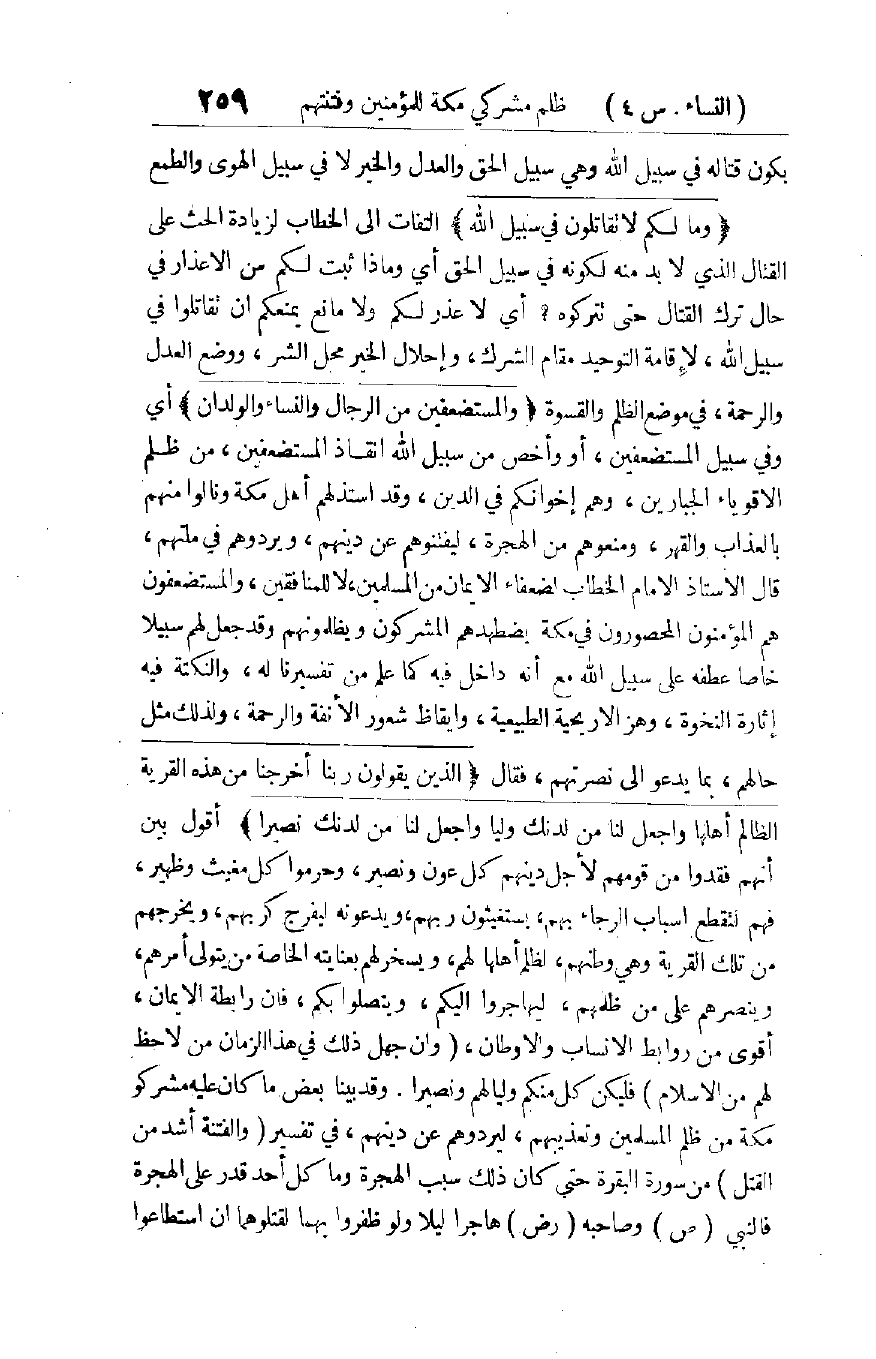 ( النساء . س ٤ ) ظلم مشركي مكة للمؤمنين وفتنتهم ٢٥٩
يكون قتاله في سبيل الله وهي سبيل الحق والعدل والخير لا في سبيل الهوى والطمع
﴿ وما لكم لا تقاتلون في سبيل الله ﴾ التفات الى الخطاب لزيادة الحث على
القتال الذي لا بد منه لكونه في سبيل الحق أي وماذا ثبت لكم من الاعذار في
حال ترك القتال حتى تتركوه ? أي لا عذر لكم ولا مانع يمنعكم ان تقاتلوا في
سبيل الله ، لإقامة التوحيد مقام الشرك ، وإحلال الخير محل الشر ، ووضع العدل
والرحمة ، في موضع الظلم والقسوة ﴿ والمستضعفين من الرجال والنساء والولدان ﴾ أي
وفي سبيل المستضعفين ، أو وأخص من سبيل الله انقاذ المستضعفين ، من ظلم
الاقوياء الجبارين ، وهم إخوانكم في الدين ، وقد استذلهم أهل مكة ونالوا منهم
بالعذاب والقهر ، ومنعوهم من الهجرة ، ليفتنوهم عن دينهم ، ويردوهم في ملتهم ،
قال الاستاذ الامام الخطاب لضعفاء الايمان من المسلمين ، لا للمنافقين ، والمستضعفون
هم المؤمنون المحصورون في مكة يضطهدهم المشركون ويظلمونهم وقد جعل لهم سبيلا
خاصا عطفه على سبيل الله مع أنه داخل فيه كما علم من تفسيرنا له ، والنكتة فيه
إثارة النخوة ، وهز الاريحية الطبيعية ، وايقاظ شعور الأنفة والرحمة ، ولذلك مثل
حالهم ، بما يدعو الى نصرتهم ، فقال ﴿ الذين يقولون ربنا أخرجنا من هذه القرية
الظالم أهلها واجعل لنا من لدنك وليا واجعل لنا من لدنك نصيرا ﴾ أقول بين
أنهم فقدوا من قومهم لأجل دينهم كل عون ونصير ، وحرموا كل مغيث وظهير ،
فهم لتقطع اسباب الرجاء بهم ، يستغيثون ربهم ، ويدعونه ليفرج كربهم ، ويخرجهم
من تلك القرية وهي وطنهم ، لظلم أهلها لهم ، ويسخر لهم بعنايته الخاصة من يتولى أمرهم ،
وينصرهم على من ظلمهم ، ليهاجروا اليكم ، ويتصلوا بكم ، فان رابطة الايمان ،
أقوى من روابط الانساب والاوطان ، ( وان جهل ذلك في هذا الزمان من لاحظ
لهم من الاسلام ) فليكن كل منكم وليا لهم ونصيرا . وقد بينا بعض ما كان عليه مشركو
مكة من ظلم المسلمين وتعذيبهم ، ليردوهم عن دينهم ، في تفسير ( والفتنة أشد من
القتل ) من سورة البقرة حتى كان ذلك سبب الهجرة وما كل أحد قدر على الهجرة
فالنبي ( ص ) وصاحبه ( رض ) هاجرا ليلا ولو ظفروا بهما لقتلوهما ان استطاعوا